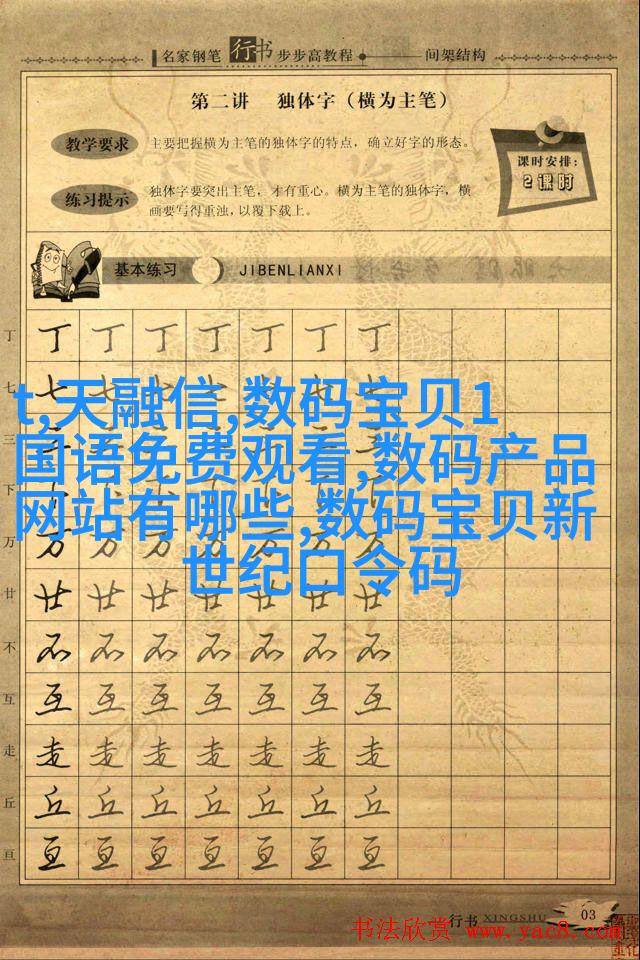 名家钢笔 行书 步步高教程 间架结构
第二讲 独体字（横为主笔）
教学要求
主要把握横为主笔的独体字的特点，确立好字的形态。
课时安排：
2课时
练习提示
独体字要突出主笔，才有重心。横为主笔的独体字，横
画要写得重浊，以覆下载上。
基本练习 JIBENLIANXI
丁 丁 丁 丁 丁 丁 丁 丁
七 七
t,天融信,数码宝贝1
国语免费观看,数码产品
网站有哪些,数码宝贝新
世纪口令码
三
下
万 万 万 万 万 万 万 万
廿 廿 廿 廿 廿 廿 廿 廿
不 不 不 不 不 不 不 不
互 互 互 互 互 互 互 互
走 走 走 走 走 走 走 走
丘 丘 丘 丘 丘 丘 丘 丘
亘 亘 亘 亘 亘 亘 亘 亘
行书 XINGSHU 03
书法欣赏 www.yac8.com